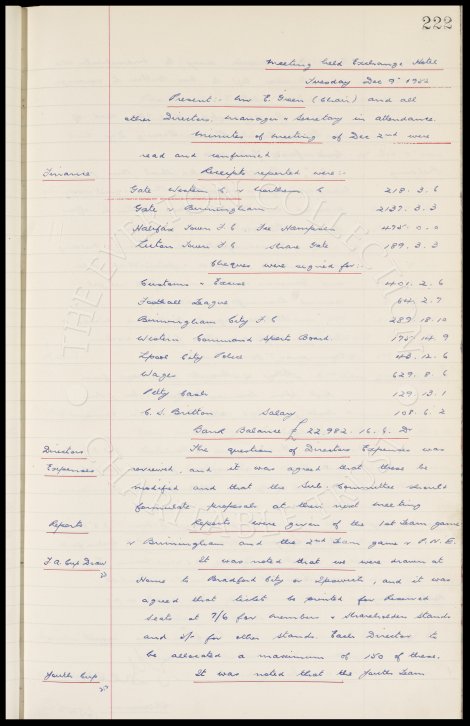 222
Meeting held Exchange Hotel
Tuesday Dec 9th 1952
Present:- Mr E. Green (Chair) and all
other Directors, Manager & Secretary in attendance.
Minutes of meeting of Dec 2nd were
read and confirmed
Finance Receipts reported were:-
Gate Western C. v Northern C 218. 3. 6
Gate v Birmingham 2137. 3. 3
Halifax Town F.C. Fee Hampson 475. 0. 0
Luton Town F.C. Share Gate 189. 3. 3
Cheques were signed for:-
Customs & Excise 401. 2. 6
Football League 64. 2. 7
Birmingham City F.C 289. 18. 10
Western Command Sports Board. 195. 14. 9
Lpool City Police 43. 12. 6
Wages 629. 8. 6
Petty Cash 129. 13. 1
C. S. Britton Salary 108. 6. 2
Bank Balance £ 22,982. 16. 6. Dr
Directors The question of Directors Expenses was
Expenses reviewed, and it was agreed that these be
modified and that the Sub. Committee should
formulate proposals at their next meeting
Reports Reports were given of the 1st Team game
v Birmingham and the 2nd Team game v P.N.E.
F.A. Cup Draw It was noted that we were drawn at
Home to Bradford City or Ipswich, and it was
agreed that tickets be printed for Reserved
Seats at 7/6 for members & shareholders stands
and 5/- for other stands. Each Director to
be allocated a maximum of 150 of these.
Youth Cup It was noted that the Youth Team
THE EVERTON COLLECTION
CHARITABLE TRUST